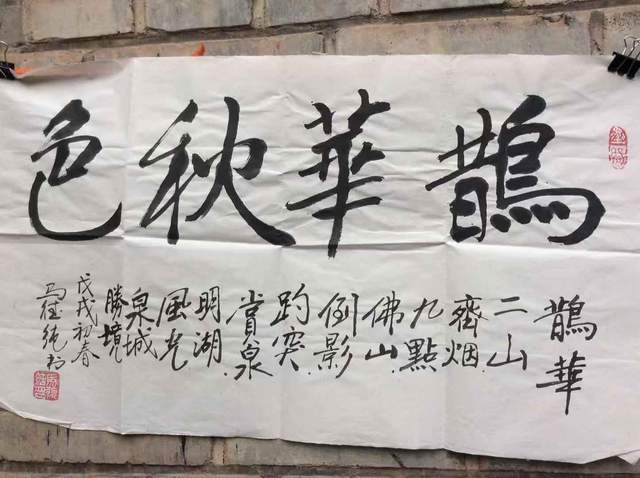 鵲華秋色
鵲華
二山
齊烟
九點
佛山
倒影
趵突
賞泉
明湖
風光
泉城
勝境
戊戌初春
馬德純书